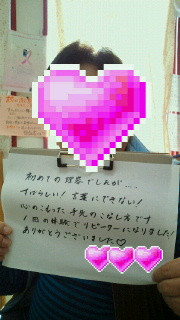 初めての対応でしたが.....
すばらしい！言葉にできない！
心のこもった手先のこなし方です
1回の体験でリピーターになりました！
ありがとうございました♡